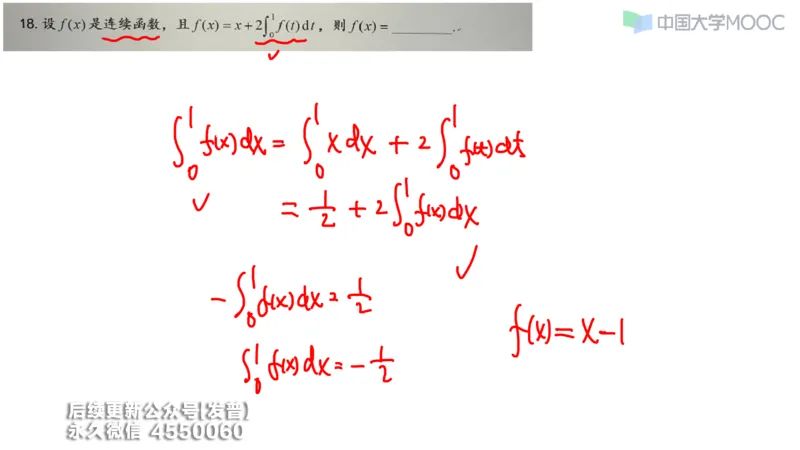 18. 设 f(x) 是连续函数，且 f(x) = x + 2∫₀¹ f(t)dt，则 f(x) = ________.
中国大学MOOC
∫₀¹ f(x)dx = ∫₀¹ x dx + 2∫₀¹ f(t)dt
= 1/2 + 2∫₀¹ f(x)dx
-∫₀¹ f(x)dx = 1/2
f(x) = x - 1
∫₀¹ f(x)dx = - 1/2
后续更新公众号[发普]
永久微信 4550060